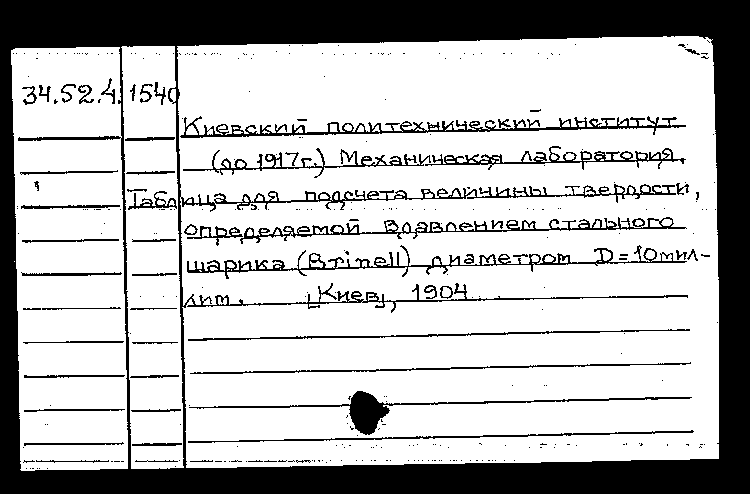 34.52.4. 1540
Киевский политехнический институт
(до 1917г.) Механическая лаборатория.
Таблица для подсчета величины твердости,
определяемой вдавлением стального
шарика (Brinell) диаметром D=10мил-
лим. [Киев], 1904